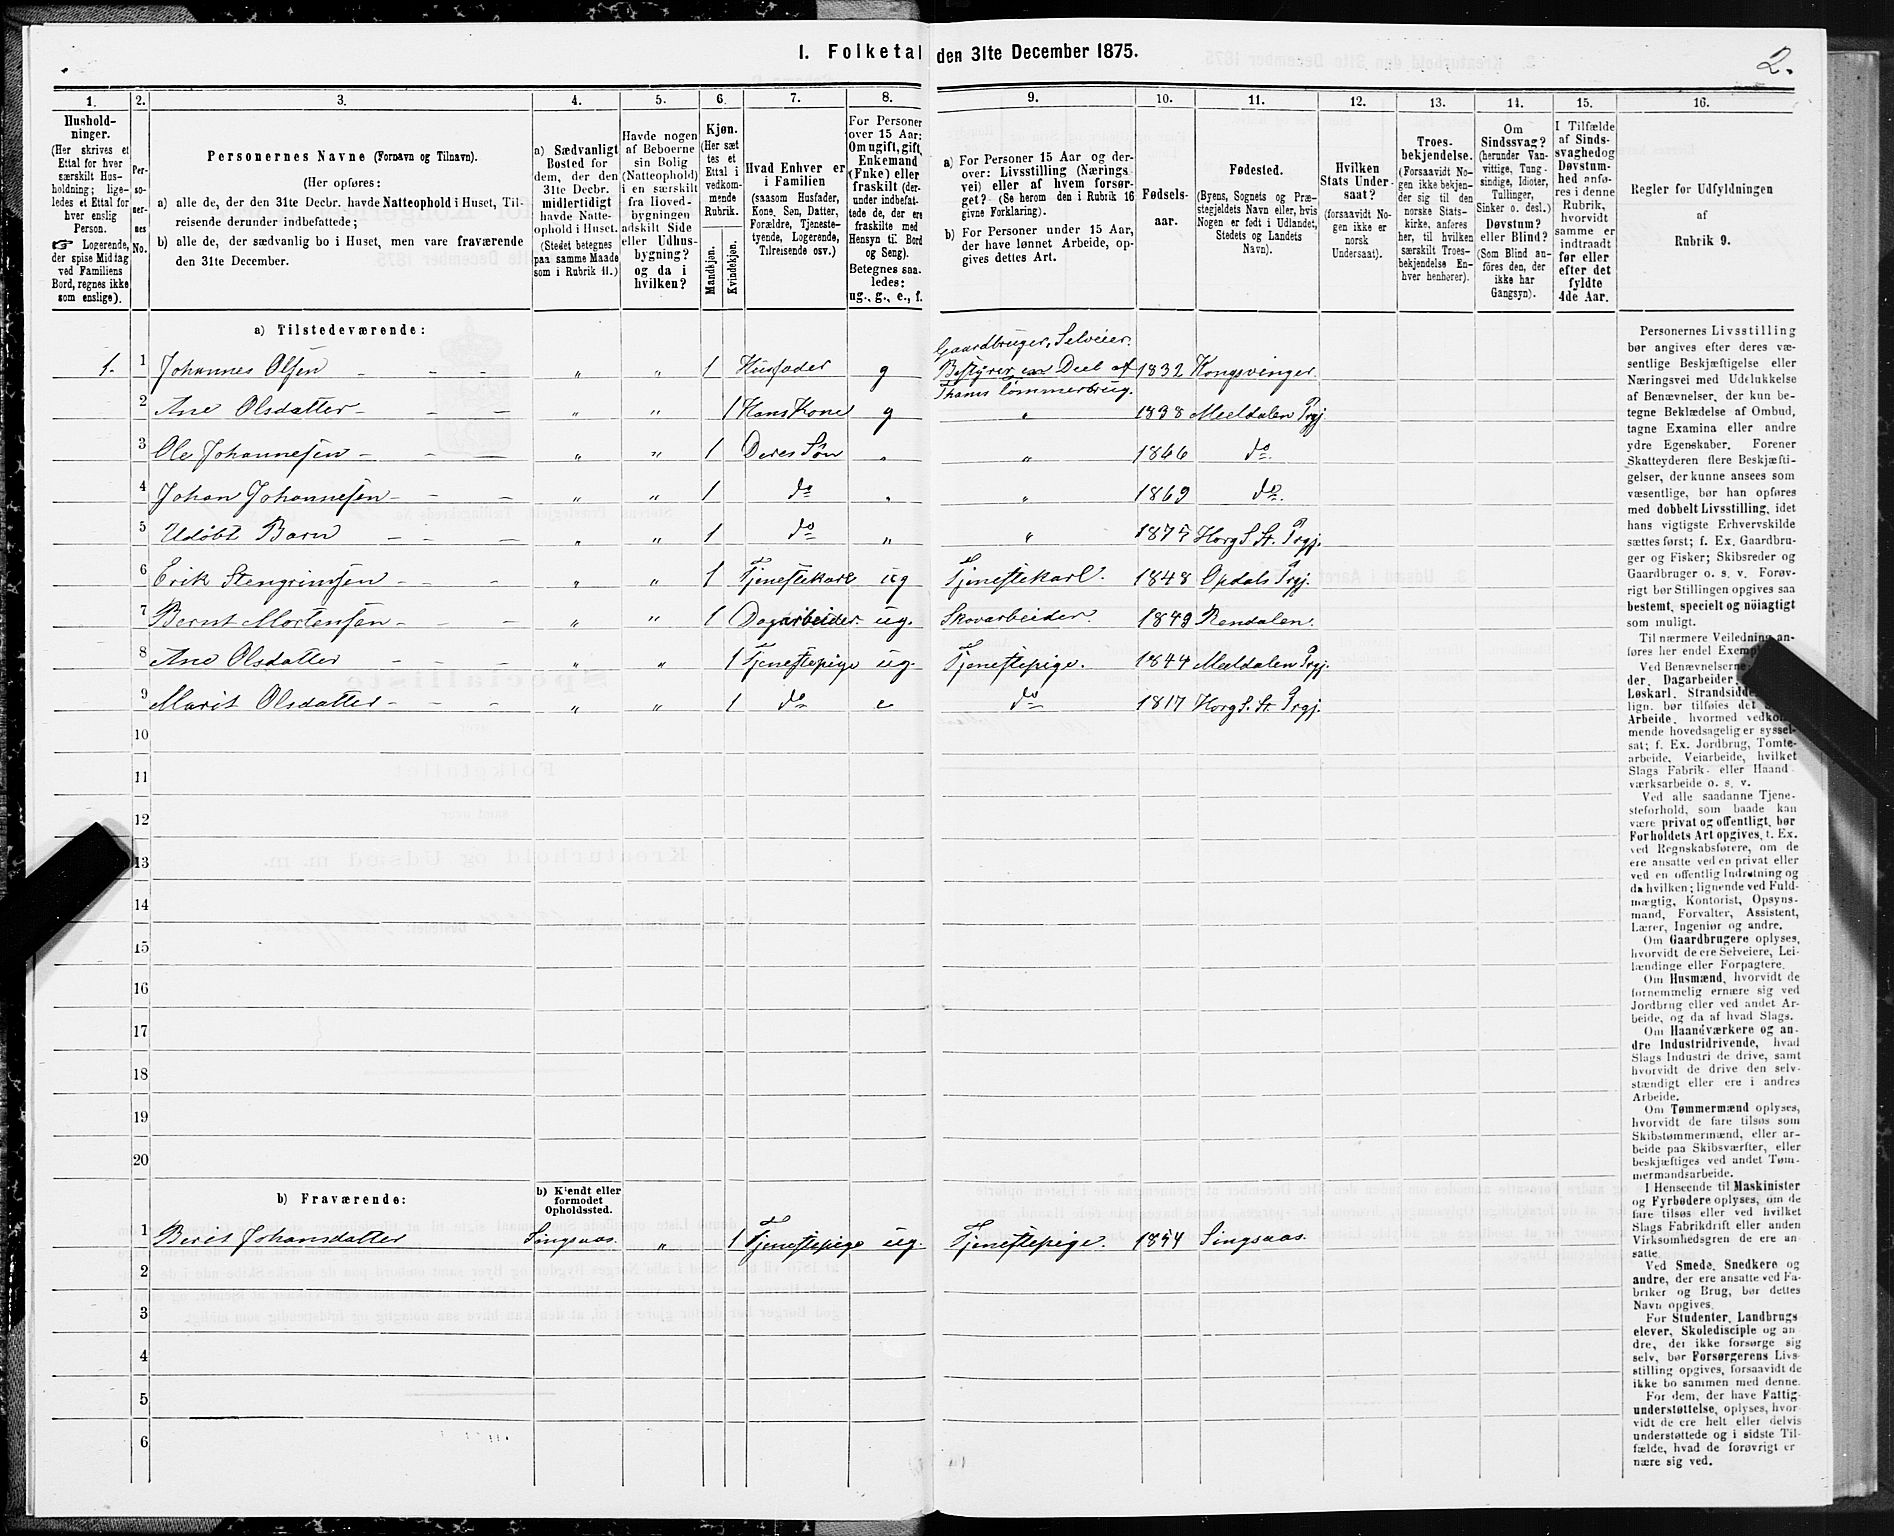 I. Folketal den 31te December 1875.
2.
1. 2. 3. 4. 5. 6. 7. 8. 9. 10. 11. 12. 13. 14. 15. 16.
Hushold-
ninger.
(Her skrives et
Ettal for hver
særskilt Hus-
holdning; lige-
ledes et Ettal for
hver enslig
Person.
☞ Logerende,
der spise Middag
ved Familiens
Bord, regnes ikke
som enslige).
Per-
so-
ner-
nes
No.
Personernes Navne (Fornavn og Tilnavn).
(Her opføres:
a) alle de, der den 31te Decbr. havde Natteophold i Huset, Til-
reisende derunder indbefattede;
b) alle de, der sædvanlig bo i Huset, men vare fraværende
den 31te December.
a) Sædvanligt
Bosted for
dem, der den
31te Decbr.
midlertidigt
havde Natte-
ophold i Huset.
(Stedet betegnes
paa samme Maade
som i Rubrik 11.)
Havde nogen
af Beboerne
sin Bolig
(Natteophold)
i en særskilt
fra Hoved-
bygningen
adskilt Side
eller Udhus-
bygning?
og da i
hvilken?
Kjøn.
(Her sæt
tes et
Ettal i
vedkom-
mende
Rubrik.
Mandkjøn.
Kvindekjøn.
Hvad Enhver er
i Familien
(saasom Husfader,
Kone, Søn, Datter,
Forældre, Tjeneste-
tyende, Logerende,
Tilreisende osv.)
For Personer
over 15 Aar:
Om ugift, gift,
Enkemand
(Enke) eller
fraskilt (der-
under indbefat-
tede de, der ere
fraskilte med
Hensyn til Bord
og Seng).
Betegnes saa-
ledes:
ug., g., e., f.
a) For Personer 15 Aar og der-
over: Livsstilling (Nærings
vei) eller af hvem forsør-
get? (Se herom den i Rubrik 16
givne Forklaring).
b) For Personer under 15 Aar,
der have lønnet Arbeide, op-
gives dettes Art.
Fødsels-
aar.
Fødested.
(Byens, Sognets og Præ-
stegjeldets Navn eller, hvis
Nogen er født i Udlandet,
Stedets og Landets
Navn).
Hvilken
Stats Under-
saat?
(forsaavidt No-
gen ikke er
norsk
Undersaat).
Troes-
bekjendelse.
(Forsaavidt No-
gen ikke bekjen-
der sig til den
norske Stats-
kirke, anføres
her, til hvilken
særskilt Troes-
bekjendelse En-
hver henhører).
Om
Sindssvag?
(herunder Van-
vittige, Tung-
sindige, Idioter,
Tullinger,
Sinker o. desl.)
Døvstum?
eller Blind?
(Som Blind an-
føres den, der
ikke har
Gangsyn).
I Tilfælde
af Sinds-
svaghed og
Døvstum-
hed anfø-
res i denne
Rubrik,
hvorvidt
samme er
indtraadt
før eller
efter det
fyldte
4de Aar.
Regler for Udfyldningen
af
Rubrik 9.
a) Tilstedeværende:
1. 1 Johannes Olsen - - - „ „ 1 Husfader g Gaardbruger, Selveier. Bestyrer en Deel af Thams Tømmerbrug. 1832 Kongsvinger.
2 Ane Olsdatter - - - „ „ 1 Hans Kone g „ 1838 Meeldalen Prgj.
3 Ole Johannesen - - - „ „ 1 Deres Søn „ „ 1866 do.
4 Johan Johannesen - - - „ „ 1 do „ „ 1869 do.
5 Udøbt Barn - - - „ „ 1 do „ „ 1875 Horg S. St. Prgj.
6 Erik Stengrimsen - - - „ „ 1 Tjenestekarl ug Tjenestekarl. 1848 Opdals Prgj.
7 Bernt Mortensen - - - „ „ 1 Dagarbeider. ug. Skovarbeider. 1849 Rendalen.
8 Ane Olsdatter - - - „ „ 1 Tjenestepige ug. Tjenestepige. 1844 Meeldalen Prgj.
9 Marit Olsdatter - - - „ „ 1 do e do 1817 Horg S. St. Prgj.
10
11
12
13
14
15
16
17
18
19
20
b) Fraværende:
b) Kjendt eller
formodet
Opholdssted.
1 Berit Johansdatter Singsaas. „ 1 Tjenestepige ug. Tjenestepige. 1854 Singsaas.
2
3
4
5
6
Personernes Livsstilling
bør angives efter deres væ-
sentlige Beskjæftigelse eller
Næringsvei med Udelukkelse
af Benævnelser, der kun be-
tegne Beklædelse af Ombud,
tagne Examina eller andre
ydre Egenskaber. Forener
Skatteyderen flere Beskjæfti-
gelser, der kunne ansees som
væsentlige, bør han opføres
med dobbelt Livsstilling, idet
hans vigtigste Erhvervskilde
sættes først; f. Ex. Gaardbru-
ger og Fisker; Skibsreder og
Gaardbruger o. s. v. Forøv-
rigt bør Stillingen opgives saa
bestemt, specielt og nøiagtigt
som muligt.
Til nærmere Veiledning an-
føres her endel Exemp
Ved Benævnelserne
der, Dagarbeider
Løskarl, Strandsidde
lign. bør tilføies det
Arbeide, hvormed vedkom-
mende hovedsagelig er syssel-
sat; f. Ex. Jordbrug, Tomte-
arbeide, Veiarbeide, hvilket
Slags Fabrik- eller Haand-
værksarbeide o. s. v.
Ved alle saadanne Tjene-
steforhold, som baade kan
være privat og offentligt, bør
Forholdets Art opgives, t. Ex.
ved Regnskabsførere, om de
ere ansatte ved en privat eller
ved en offentlig Indretning og
da hvilken; lignende ved Fuld-
mægtig, Kontorist, Opsyns-
mand, Forvalter, Assistent,
Lærer, Ingeniør og andre.
Om Gaardbrugere oplyses,
hvorvidt de ere Selveiere, Lei-
lændinge eller Forpagtere.
Om Husmænd, hvorvidt de
fornemmelig ernære sig ved
Jordbrug eller ved andet Ar-
beide, og da af hvad Slags.
Om Haandværkere og an-
dre Industridrivende, hvad
Slags Industri de drive, samt
hvorvidt de drive den selv-
stændigt eller ere i andres
Arbeide.
Om Tømmermænd oplyses,
hvorvidt de fare tilsøs som
Skibstømmermænd, eller ar-
beide paa Skibsværfter, eller
beskjæftiges ved andet Tøm-
mermandsarbeide.
I Henseende til Maskinister
og Fyrbødere oplyses, om de
fare tilsøs eller ved hvilket
Slags Fabrikdrift eller anden
Virksomhedsgren de ere an-
satte.
Ved Smede, Snedkere og
andre, der ere ansatte ved Fa-
briker og Brug, bør dettes
Navn opgives.
For Studenter, Landbrugs
elever, Skoledisciple og an
dre, der ikke forsørge sig
selv, bør Forsørgerens Livs-
stilling opgives, forsaavidt de
ikke bo sammen med denne.
For dem, der have Fattig-
understøttelse, oplyses, hvor-
vidt de ere helt eller delvis
understøttede og i sidste Til-
fælde, hvad de forøvrigt er
nære sig ved.